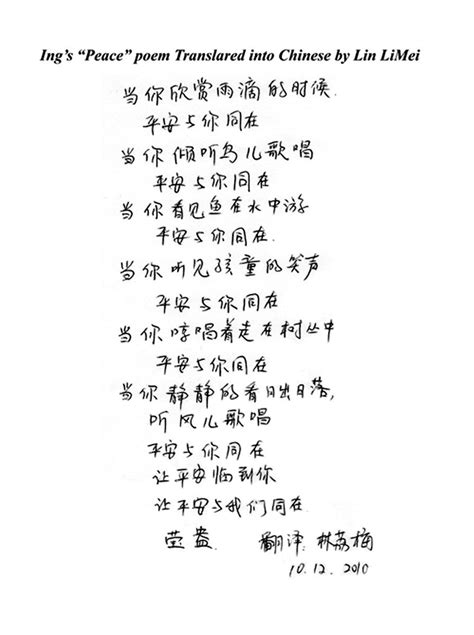 Ing's “Peace” poem Translared into Chinese by Lin LiMei
当你欣赏雨滴的时候
平安与你同在
当你倾听鸟儿歌唱
平安与你同在
当你看见鱼在水中游
平安与你同在.
当你听见孩童的笑声
平安与你同在
当你哼唱着走在树丛中
平安与你同在
当你静静的看日出日落,
听风儿歌唱
平安与你同在
让平安临到你
让平安与我们同在
翻译: 林荔梅
10.12.2010